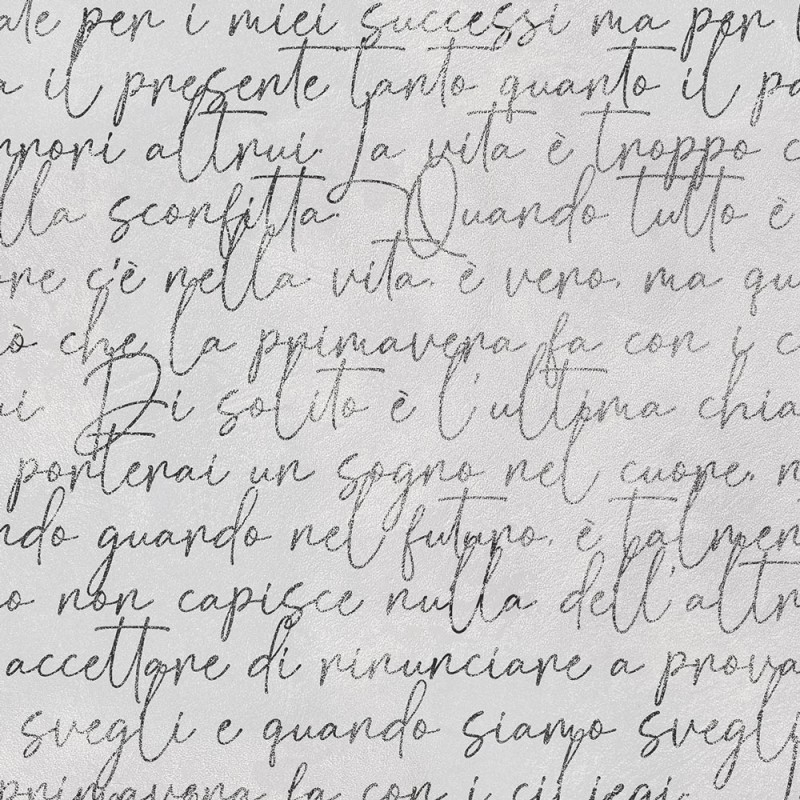 ale per i miei successi ma per
a il presente tanto quanto il pa
rrori altrui. La vita è troppo c
lla sconfitta. Quando tutto è
ore c'è nella vita, è vero, ma qu
iò che la primavera fa con i c
ui Di solito è l'ultima chia
porterai un sogno nel cuore, n
ndo guardo nel futuro, è talmen
o non capisce nulla dell'altr
accettare di rinunciare a prova
svegli e quando siamo svegli
primavera fa con i ciliegi.